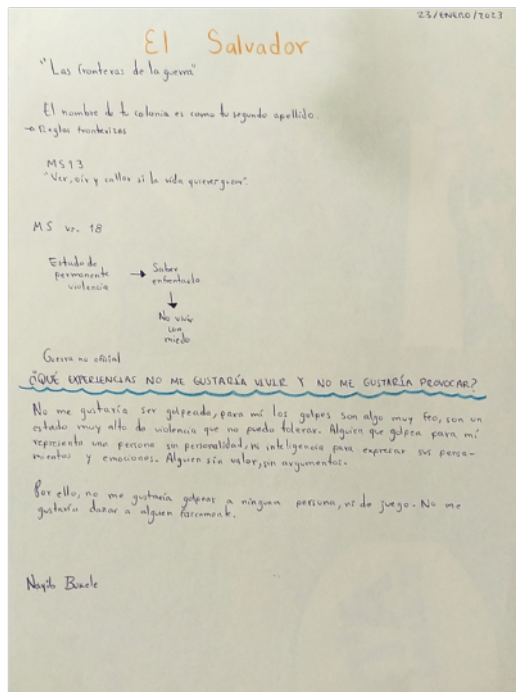 23/ENERO/2023
El Salvador
"Las fronteras de la guerra"
El nombre de tu colonia es como tu segundo apellido.
→ Reglas fronterizas
MS13
"Ver, oír y callar si la vida quieres gozar".
MS vr. 18
Estado de permanente violencia → Saber enfrentarlo
↓
No vivir con miedo
Guerra no oficial
¿QUÉ EXPERIENCIAS NO ME GUSTARÍA VIVIR Y NO ME GUSTARÍA PROVOCAR?
No me gustaría ser golpeado, para mí los golpes son algo muy feo, son un
estado muy alto de violencia que no puedo tolerar. Alguien que golpea para mí
representa una persona sin personalidad, ni inteligencia para expresar sus pensa-
mientos y emociones. Alguien sin valor, sin argumentos.
Por ello, no me gustaría golpear a ninguna persona, ni de juego. No me
gustaría dañar a alguien físicamente.
Nayib Bukele